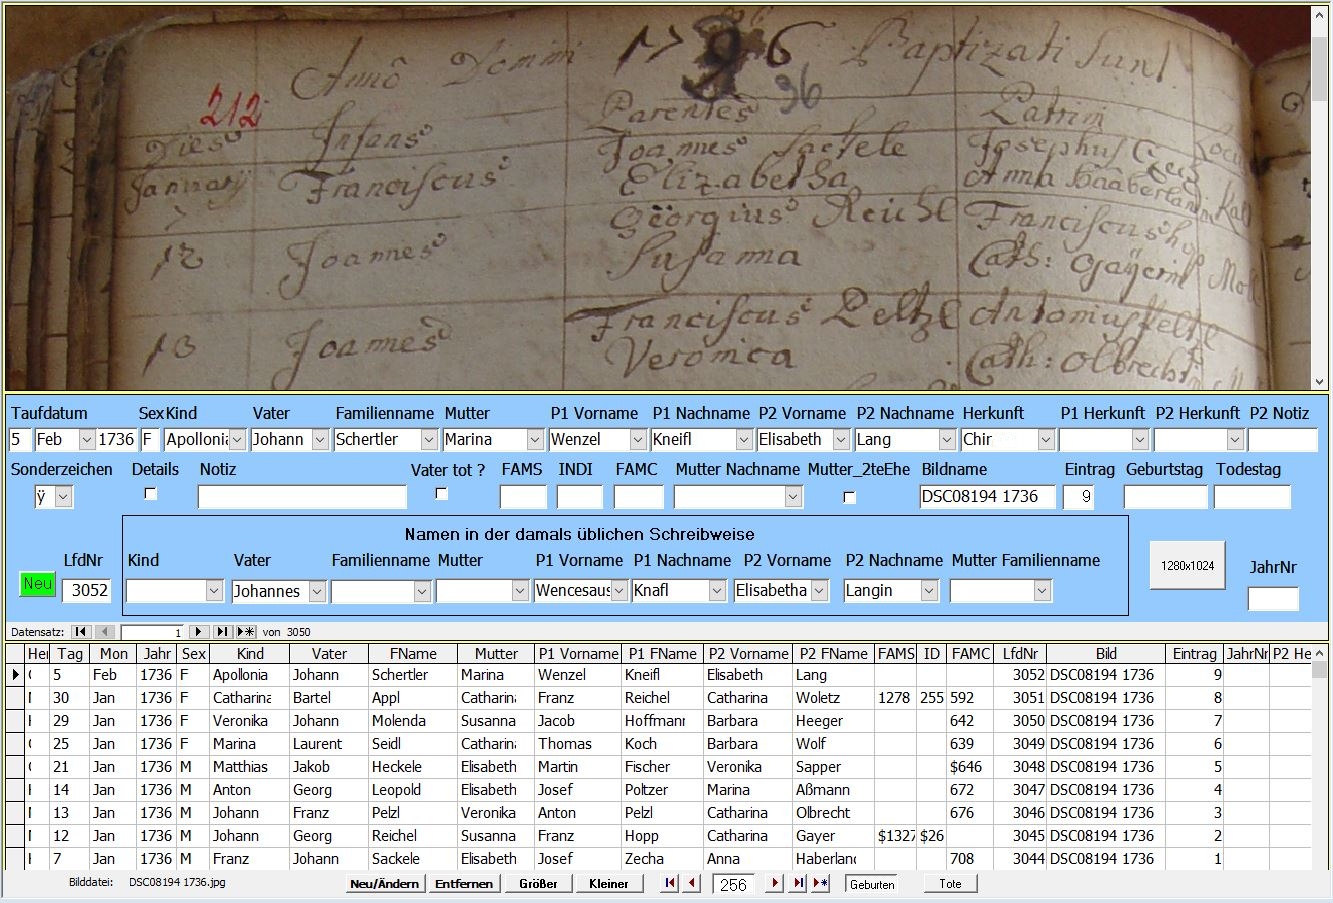 Annô Domini 1796 Baptizati Sunt
212 36
Dies Infans Parentes Patrini Locu
January Franciscus Joannes Sackele Josephus
7 Elizabetha Anna Haaberlandin
12 Joannes Georgius Reichl Franciscus hop
Susanna Cath: Gaÿerin
13 Joannes Franciscus Peltzl Antonius Peltzl
Veronica Cath: Olbrecht
Taufdatum Sex Kind Vater Familienname Mutter P1 Vorname P1 Nachname P2 Vorname P2 Nachname Herkunft P1 Herkunft P2 Herkunft P2 Notiz
5 Feb 1736 F Apolloni Johann Schertler Marina Wenzel Kneifl Elisabeth Lang Chir
Sonderzeichen Details Notiz Vater tot ? FAMS INDI FAMC Mutter Nachname Mutter_2teEhe Bildname Eintrag Geburtstag Todestag
ÿ DSC08194 1736 9
Namen in der damals üblichen Schreibweise
LfdNr Kind Vater Familienname Mutter P1 Vorname P1 Nachname P2 Vorname P2 Nachname Mutter Familienname 1280x1024 JahrNr
Neu 3052 Johannes Wencesaus Knafl Elisabetha Langin
Datensatz: 1 von 3050
Her Tag Mon Jahr Sex Kind Vater FName Mutter P1 Vorname P1 FName P2 Vorname P2 FName FAMS ID FAMC LfdNr Bild Eintrag JahrNr P2 He
5 Feb 1736 F Apollonia Johann Schertler Marina Wenzel Kneifl Elisabeth Lang 3052 DSC08194 1736 9
30 Jan 1736 F Catharina Bartel Appl Catharin Franz Reichel Catharina Woletz 1278 255 592 3051 DSC08194 1736 8
29 Jan 1736 F Veronika Johann Molenda Susanna Jacob Hoffmann Barbara Heeger 642 3050 DSC08194 1736 7
25 Jan 1736 F Marina Laurent Seidl Catharin Thomas Koch Barbara Wolf 639 3049 DSC08194 1736 6
21 Jan 1736 M Matthias Jakob Heckele Elisabeth Martin Fischer Veronika Sapper $646 3048 DSC08194 1736 5
14 Jan 1736 M Anton Georg Leopold Elisabeth Josef Poltzer Marina Aßmann 672 3047 DSC08194 1736 4
13 Jan 1736 M Johann Franz Pelzl Veronika Anton Pelzl Catharina Olbrecht 676 3046 DSC08194 1736 3
12 Jan 1736 M Johann Georg Reichel Susanna Franz Hopp Catharina Gayer $1327 $26 3045 DSC08194 1736 2
7 Jan 1736 M Franz Johann Sackele Elisabeth Josef Zecha Anna Haberland 708 3044 DSC08194 1736 1
Bilddatei: DSC08194 1736.jpg Neu/Ändern Entfernen Größer Kleiner 256 Geburten Tote